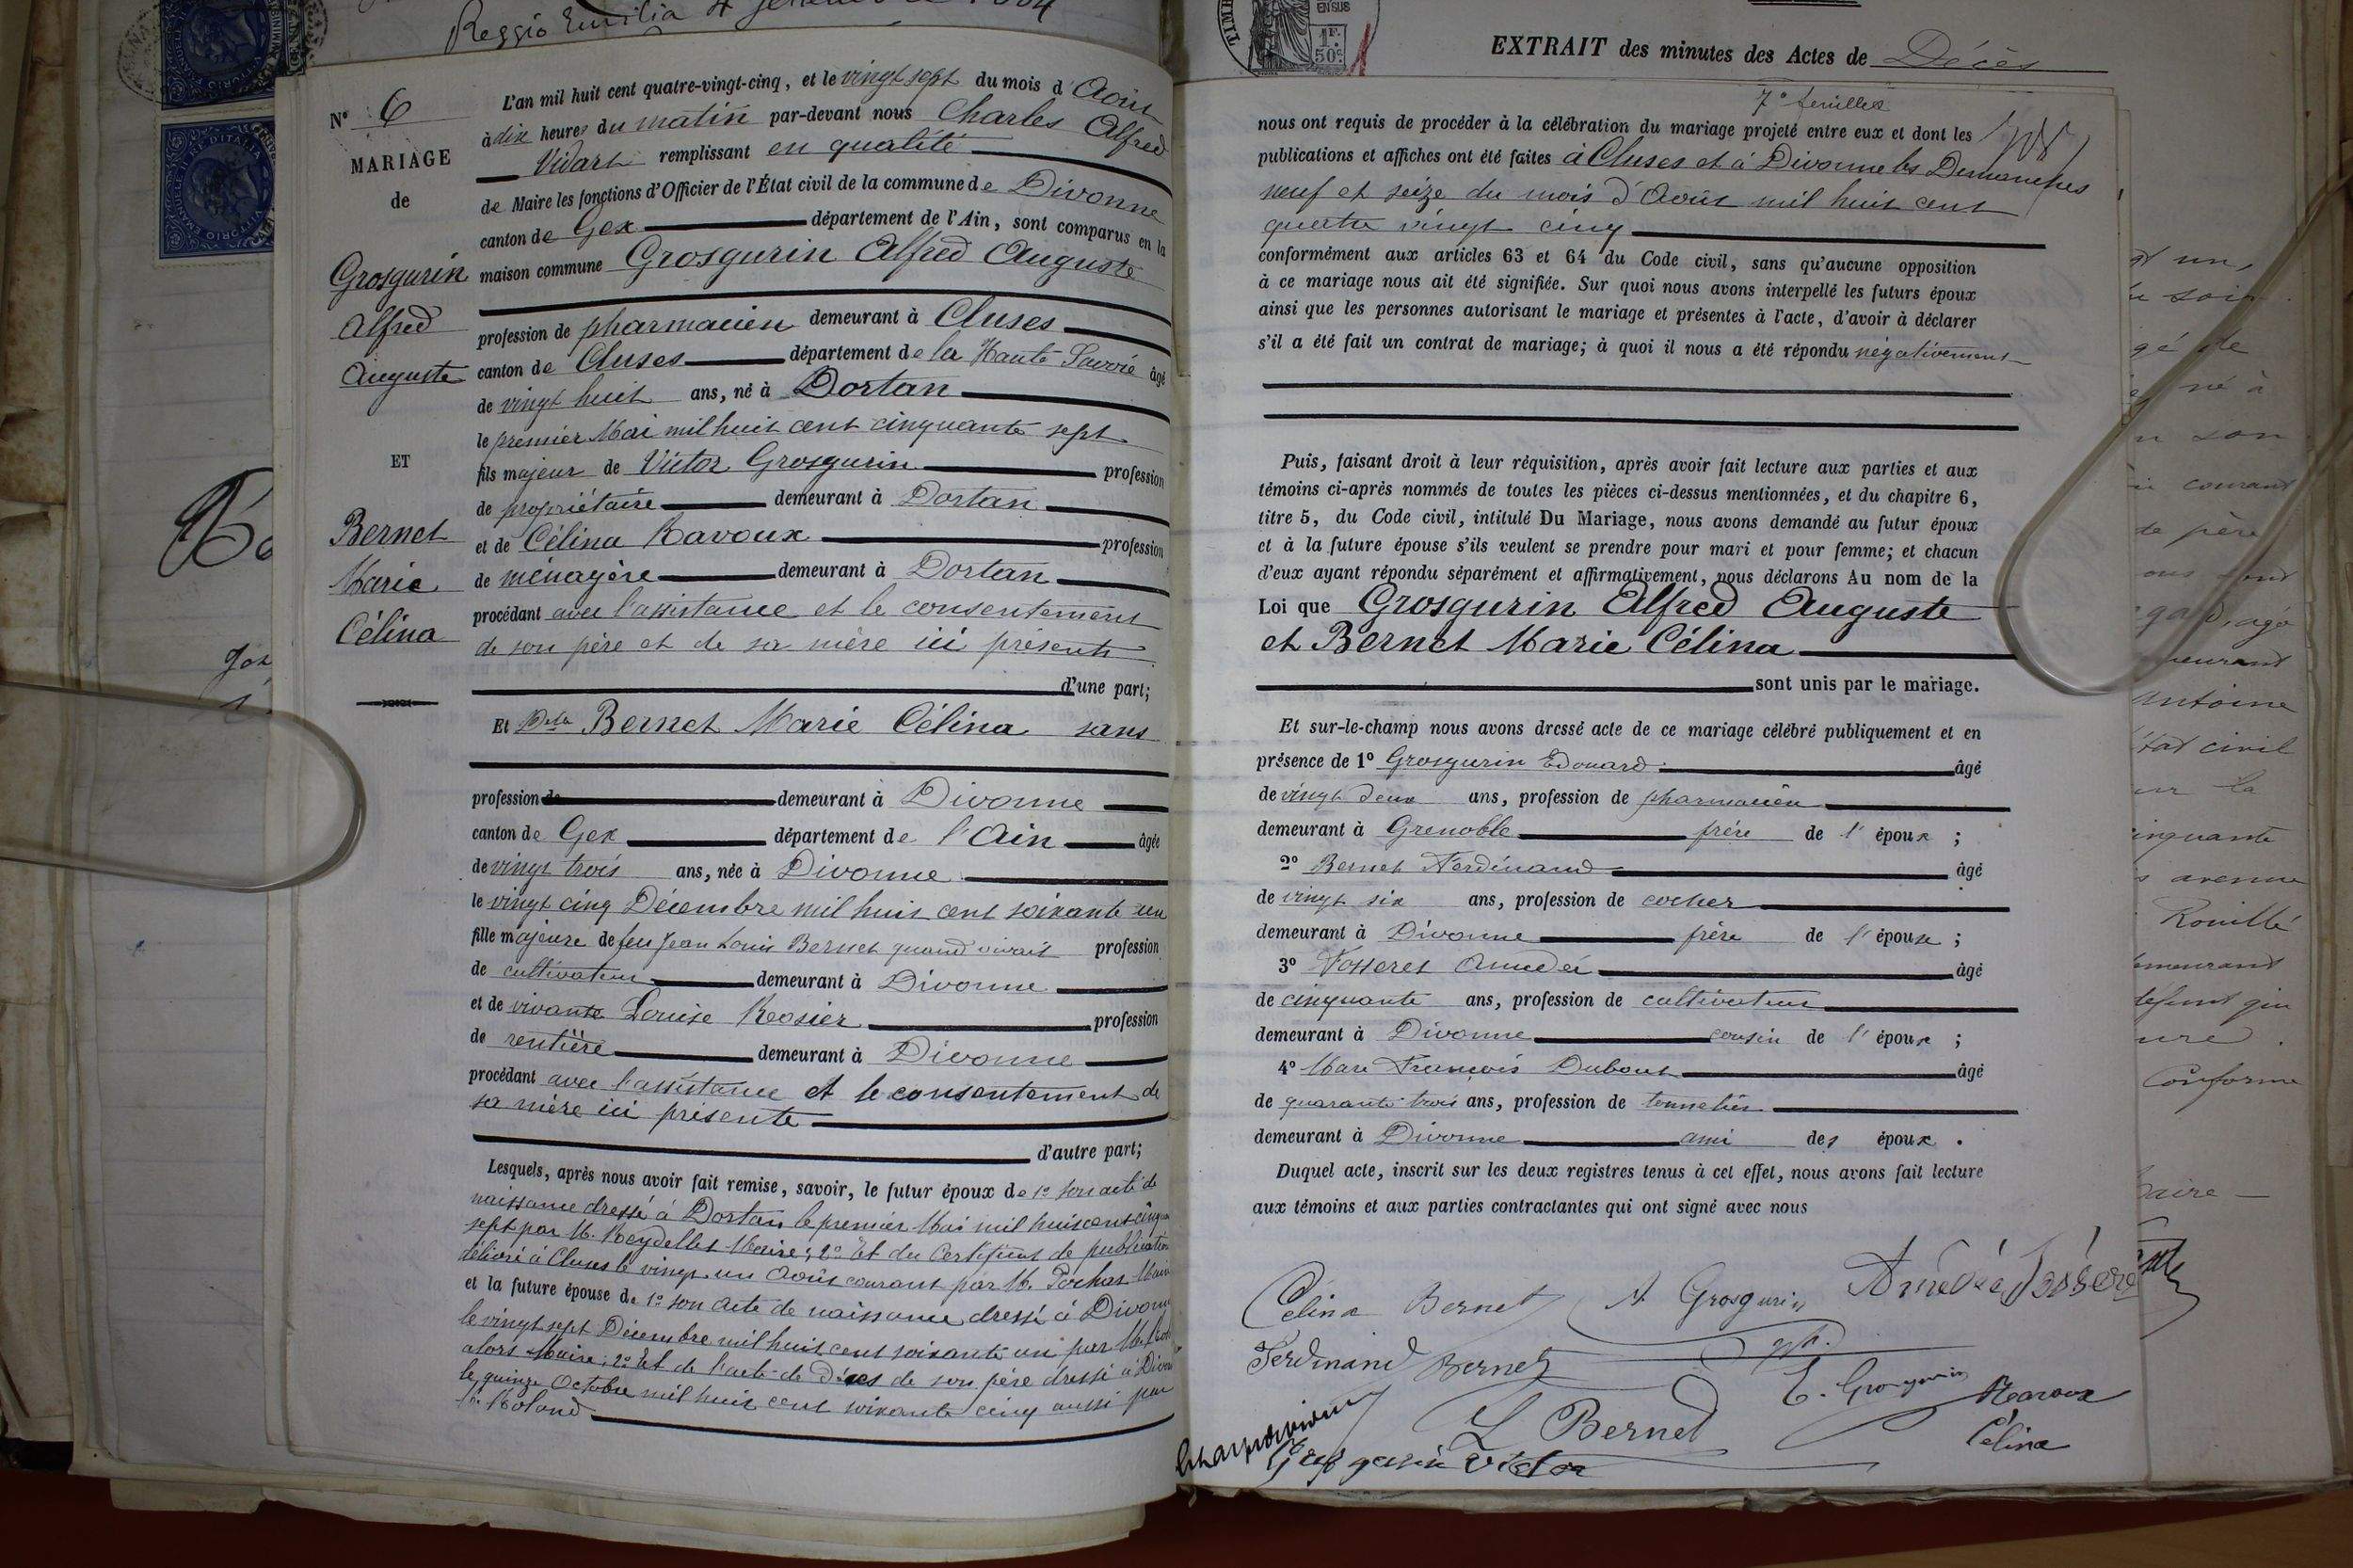 Reggio Emilia 4
N° 6
MARIAGE
de
Grosgurin
Alfred
Auguste
ET
Bernet
Marie
Célina
L'an mil huit cent quatre-vingt-cinq, et le vingt sept du mois d'Août
à dix heures du matin par-devant nous Charles Alfred
Vidart remplissant en qualité
de Maire les fonctions d'Officier de l'État civil de la commune de Divonne
canton de Gex département de l'Ain, sont comparus en la
maison commune Grosgurin Alfred Auguste
profession de pharmacien demeurant à Cluses
canton de Cluses département de la Haute Savoie âgé
de vingt huit ans, né à Dortan
le premier Mai mil huit cent cinquante sept
fils majeur de Victor Grosgurin profession
de propriétaire demeurant à Dortan
et de Célina Ravoux profession
de ménagère demeurant à Dortan
procédant avec l'assistance et le consentement
de son père et de sa mère ici présents
d'une part;
Et Dlle Bernet Marie Célina sans
profession de demeurant à Divonne
canton de Gex département de l'Ain âgée
de vingt trois ans, née à Divonne
le vingt cinq Décembre mil huit cent soixante un
fille majeure de feu Jean Louis Bernet quand vivait profession
de cultivateur demeurant à Divonne
et de vivante Louise Rosier profession
de rentière demeurant à Divonne
procédant avec l'assistance et le consentement de
sa mère ici présente
d'autre part;
Lesquels, après nous avoir fait remise, savoir, le futur époux de 1° son acte de
naissance dressé à Dortan le premier Mai mil huit cent cinquante
sept par M. Reydellet Maire; 2° Et du Certificat de publication
délivré à Cluses le vingt un Août courant par M. Maire
et la future épouse de 1° son acte de naissance dressé à Divonne
le vingt sept Décembre mil huit cent soixante un par M.
alors Maire; 2° Et de l'acte de Décès de son père dressé à Divonne
le quinze Octobre mil huit cent soixante cinq aussi par
M. Roland
EXTRAIT des minutes des Actes de Décès
7° feuillet
nous ont requis de procéder à la célébration du mariage projeté entre eux et dont les
publications et affiches ont été faites à Cluses et à Divonne les Dimanches
neuf et seize du mois d'Août mil huit cent
quatre vingt cinq
conformément aux articles 63 et 64 du Code civil, sans qu'aucune opposition
à ce mariage nous ait été signifiée. Sur quoi nous avons interpellé les futurs époux
ainsi que les personnes autorisant le mariage et présentes à l'acte, d'avoir à déclarer
s'il a été fait un contrat de mariage; à quoi il nous a été répondu négativement
Puis, faisant droit à leur réquisition, après avoir fait lecture aux parties et aux
témoins ci-après nommés de toutes les pièces ci-dessus mentionnées, et du chapitre 6,
titre 5, du Code civil, intitulé Du Mariage, nous avons demandé au futur époux
et à la future épouse s'ils veulent se prendre pour mari et pour femme; et chacun
d'eux ayant répondu séparément et affirmativement, nous déclarons Au nom de la
Loi que Grosgurin Alfred Auguste
et Bernet Marie Célina
sont unis par le mariage.
Et sur-le-champ nous avons dressé acte de ce mariage célébré publiquement et en
présence de 1° Grosgurin Edouard âgé
de vingt deux ans, profession de pharmacien
demeurant à Grenoble frère de l'époux ;
2° Bernet Ferdinand âgé
de vingt six ans, profession de cocher
demeurant à Divonne frère de l'épouse ;
3° Fosseret Amédée âgé
de cinquante ans, profession de cultivateur
demeurant à Divonne cousin de l'époux ;
4° Marc François Dubout âgé
de quarante trois ans, profession de tonnelier
demeurant à Divonne ami des époux .
Duquel acte, inscrit sur les deux registres tenus à cet effet, nous avons fait lecture
aux témoins et aux parties contractantes qui ont signé avec nous
Célina Bernet A Grosgurin
Ferdinand Bernet E. Grosgurin Ravoux
L Bernet Célina
Grosgurin Victor